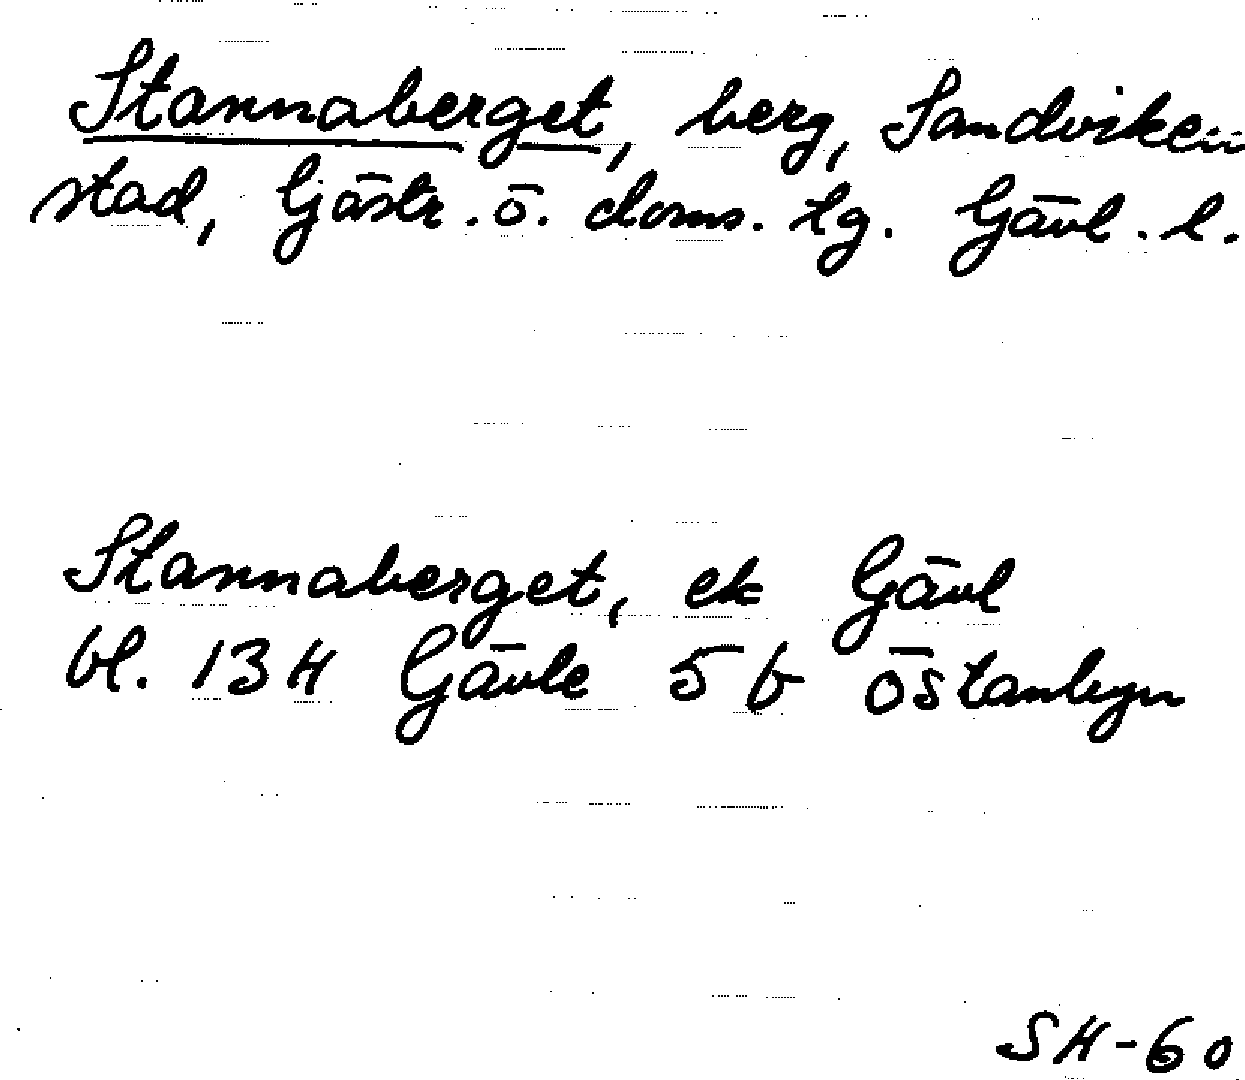 Stannaberget, berg, Sandviken
stad, Gästr. ö. doms. tg. Gävl. l.
Stannaberget, ek Gävl
bl. 13H Gävle 5b Östanbyn
SH-60